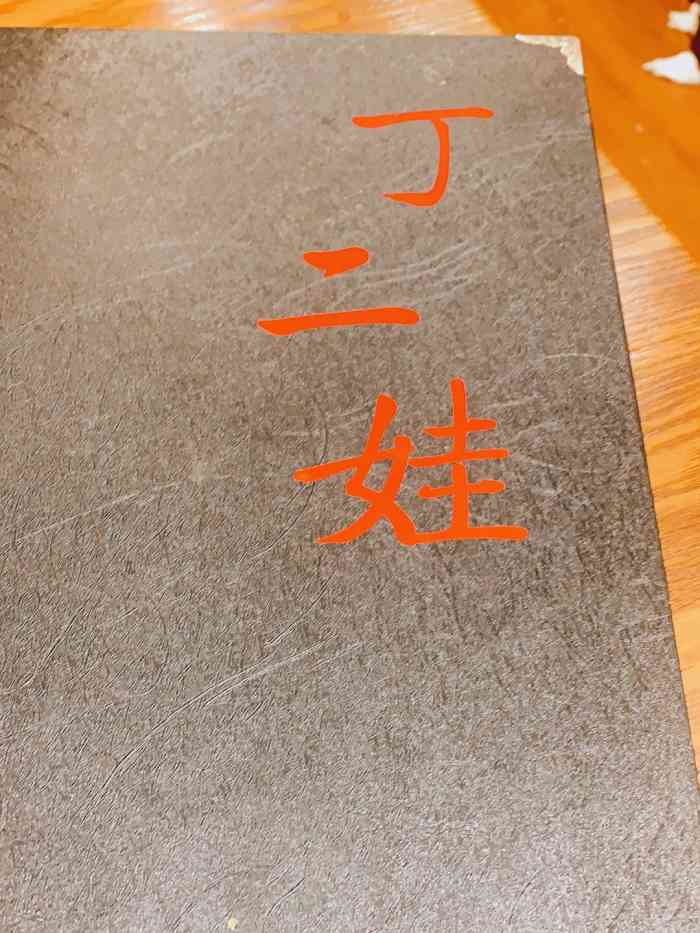 丁二娃